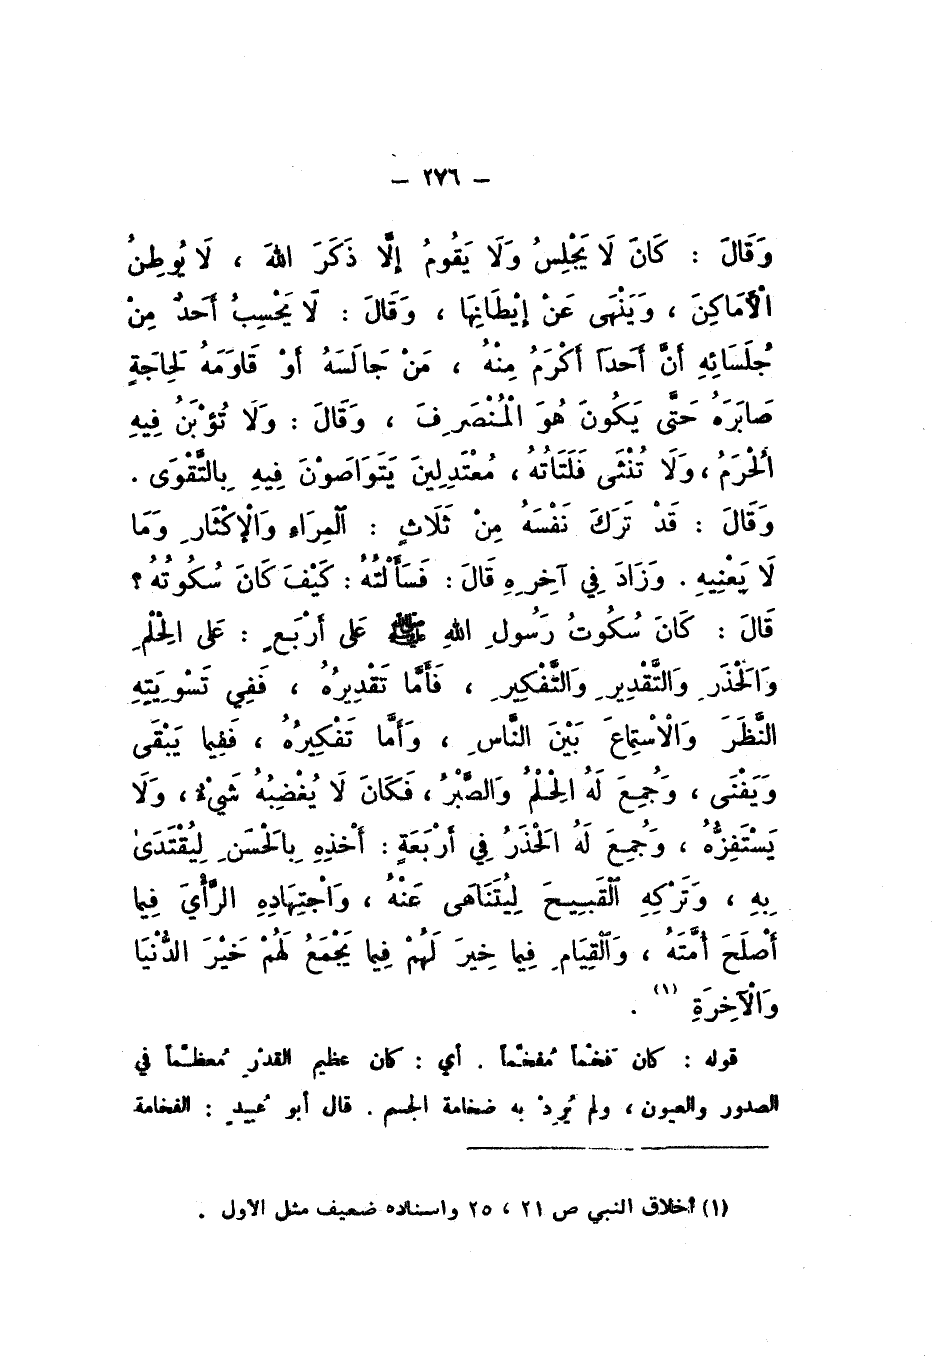 – ٢٧٦ –
وَقَالَ : كَانَ لَا يَجْلِسُ وَلَا يَقُومُ إِلَّا ذَكَرَ اللهَ ، لَا يُوطِنُ
الْأَمَاكِنَ ، وَيَنْهَى عَنْ إِيْطَانِهَا ، وَقَالَ : لَا يَحْسِبُ أَحَدٌ مِنْ
جُلَسَائِهِ أَنَّ أَحَدَاً أَكْرَمُ مِنْهُ ، مَنْ جَالَسَهُ أَوْ قَاوَمَهُ لِحَاجَةٍ
صَابَرَهُ حَتَّى يَكُونَ هُوَ الْمُنْصَرِفَ ، وَقَالَ : وَلَا تُؤْبَنُ فِيهِ
الْحُرَمُ ، وَلَا تُنْثَى فَلَتَاتُهُ ، مُعْتَدِلِينَ يَتَوَاصَوْنَ فِيهِ بِالتَّقْوَى .
وَقَالَ : قَدْ تَرَكَ نَفْسَهُ مِنْ ثَلَاثٍ : الْمِرَاءِ وَالْإِكْثَارِ وَمَا
لَا يَعْنِيهِ . وَزَادَ فِي آخِرِهِ قَالَ : فَسَأَلْتُهُ : كَيْفَ كَانَ سُكُوتُهُ ؟
قَالَ : كَانَ سُكُوتُ رَسُولِ اللهِ ﷺ عَلَى أَرْبَعٍ : عَلَى الْحِلْمِ
وَالْحَذَرِ وَالتَّقْدِيرِ وَالتَّفْكِيرِ ، فَأَمَّا تَقْدِيرُهُ ، فَفِي تَسْوِيَتِهِ
النَّظَرَ وَالْاسْتِمَاعَ بَيْنَ النَّاسِ ، وَأَمَّا تَفْكِيرُهُ ، فَفِيمَا يَبْقَى
وَيَفْنَى ، وَجُمِعَ لَهُ الْحِلْمُ وَالصَّبْرُ ، فَكَانَ لَا يُغْضِبُهُ شَيْءٌ ، وَلَا
يَسْتَفِزُّهُ ، وَجُمِعَ لَهُ الْحَذَرُ فِي أَرْبَعَةٍ : أَخْذِهِ بِالْحَسَنِ لِيُقْتَدَىٰ
بِهِ ، وَتَرْكِهِ الْقَبِيحَ لِيُتَنَاهَى عَنْهُ ، وَاجْتِهَادِهِ الرَّأْيَ فِيمَا
أَصْلَحَ أُمَّتَهُ ، وَالْقِيَامِ فِيمَا خِيرَ لَهُمْ فِيمَا يَجْمَعُ لَهُمْ خَيْرَ الدُّنْيَا
وَالْآخِرَةِ (١) .
قوله : كان فَخْماً مُفَخَّماً . أي : كان عظيم القدْرِ مُعظَّماً في
الصدور والعيون ، ولم يُرِدْ به ضخامة الجسم . قال أبو عُبيدٍ : الفخامة
(١) أخلاق النبي ص ٢١ ، ٢٥ واسناده ضعيف مثل الأول .